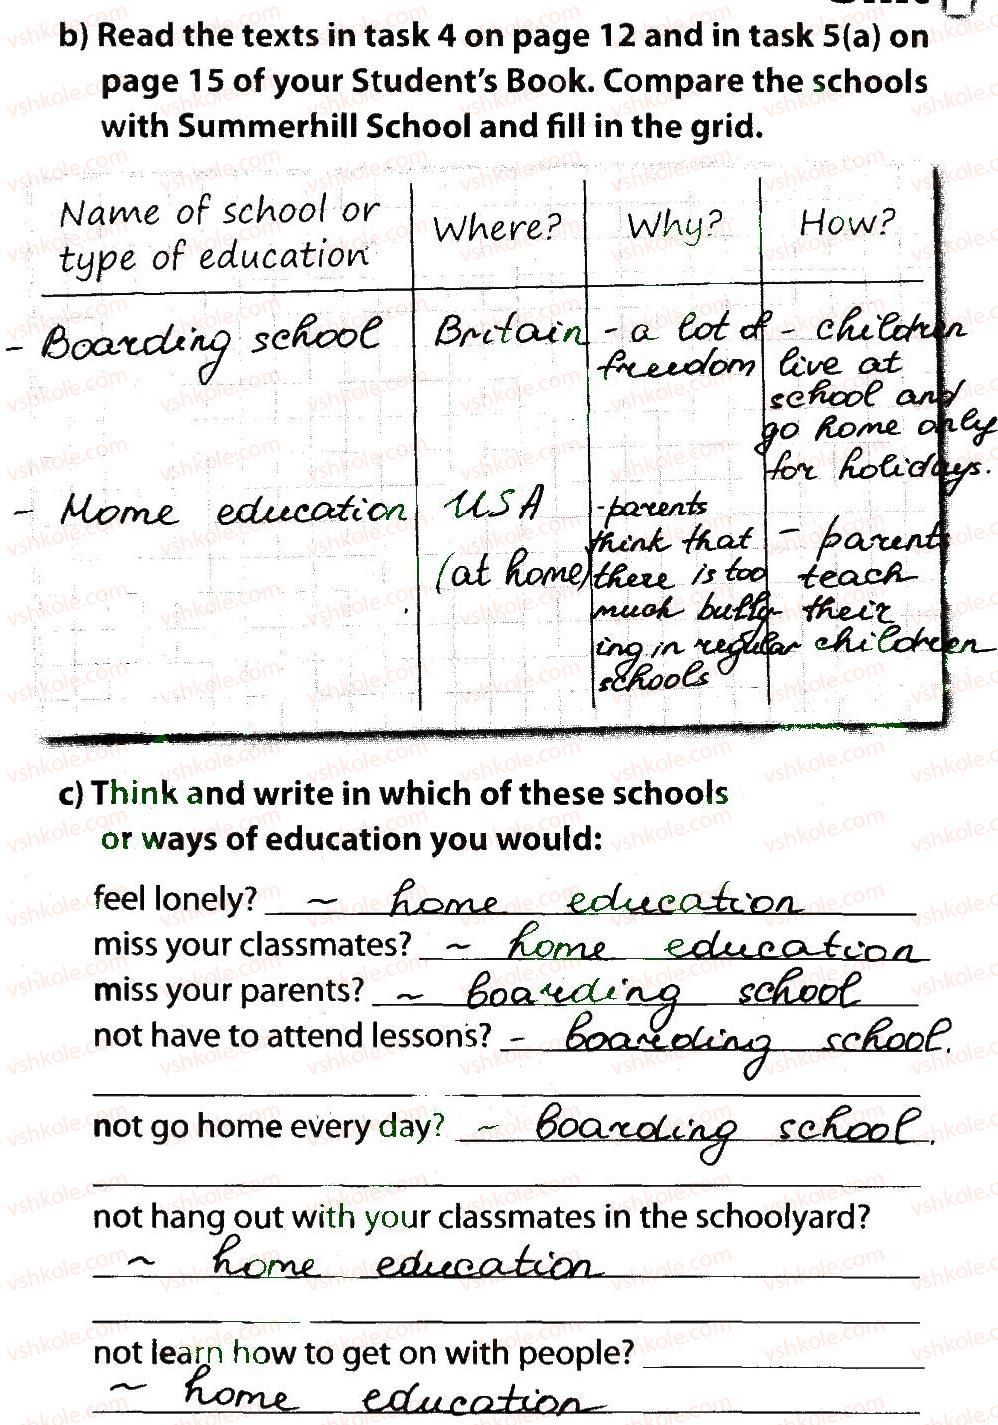 b) Read the texts in task 4 on page 12 and in task 5(a) on
page 15 of your Student's Book. Compare the schools
with Summerhill School and fill in the grid.
Name of school or
type of education
Where?
Why?
How?
- Boarding school
Britain
- a lot of
freedom
- children
live at
school and
go home only
for holidays.
- Home education
USA
(at home)
- parents
think that
there is too
much bully-
ing in regular
schools
- parents
teach
their
children
c) Think and write in which of these schools
or ways of education you would:
feel lonely? ~ home education
miss your classmates? ~ home education
miss your parents? ~ boarding school
not have to attend lessons? - boarding school.
not go home every day? ~ boarding school.
not hang out with your classmates in the schoolyard?
~ home education
not learn how to get on with people?
~ home education
vshkole.com